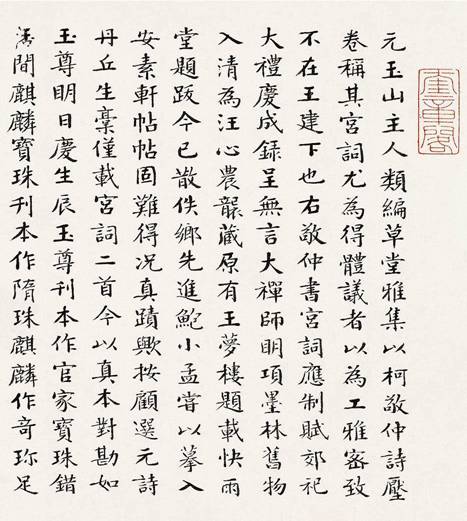 奎章閣
元玉山主人類編草堂雅集以柯敬仲詩壓
卷稱其宮詞尤為得體議者以為工雅密致
不在王建下也右敬仲書宮詞應制賦郊祀
大禮慶成錄呈無言大禪師明項墨林舊物
入清為汪心農襲藏原有王夢樓題載快雨
堂題跋今已散佚鄉先進鮑小孟嘗以摹入
安素軒帖帖固難得況真蹟歟按顧選元詩
丹丘生稾僅載宮詞二首今以真本對勘如
玉尊明日慶生辰玉尊刊本作官家寶珠錯
落間麒麟寶珠刊本作隋珠麒麟作奇珍足